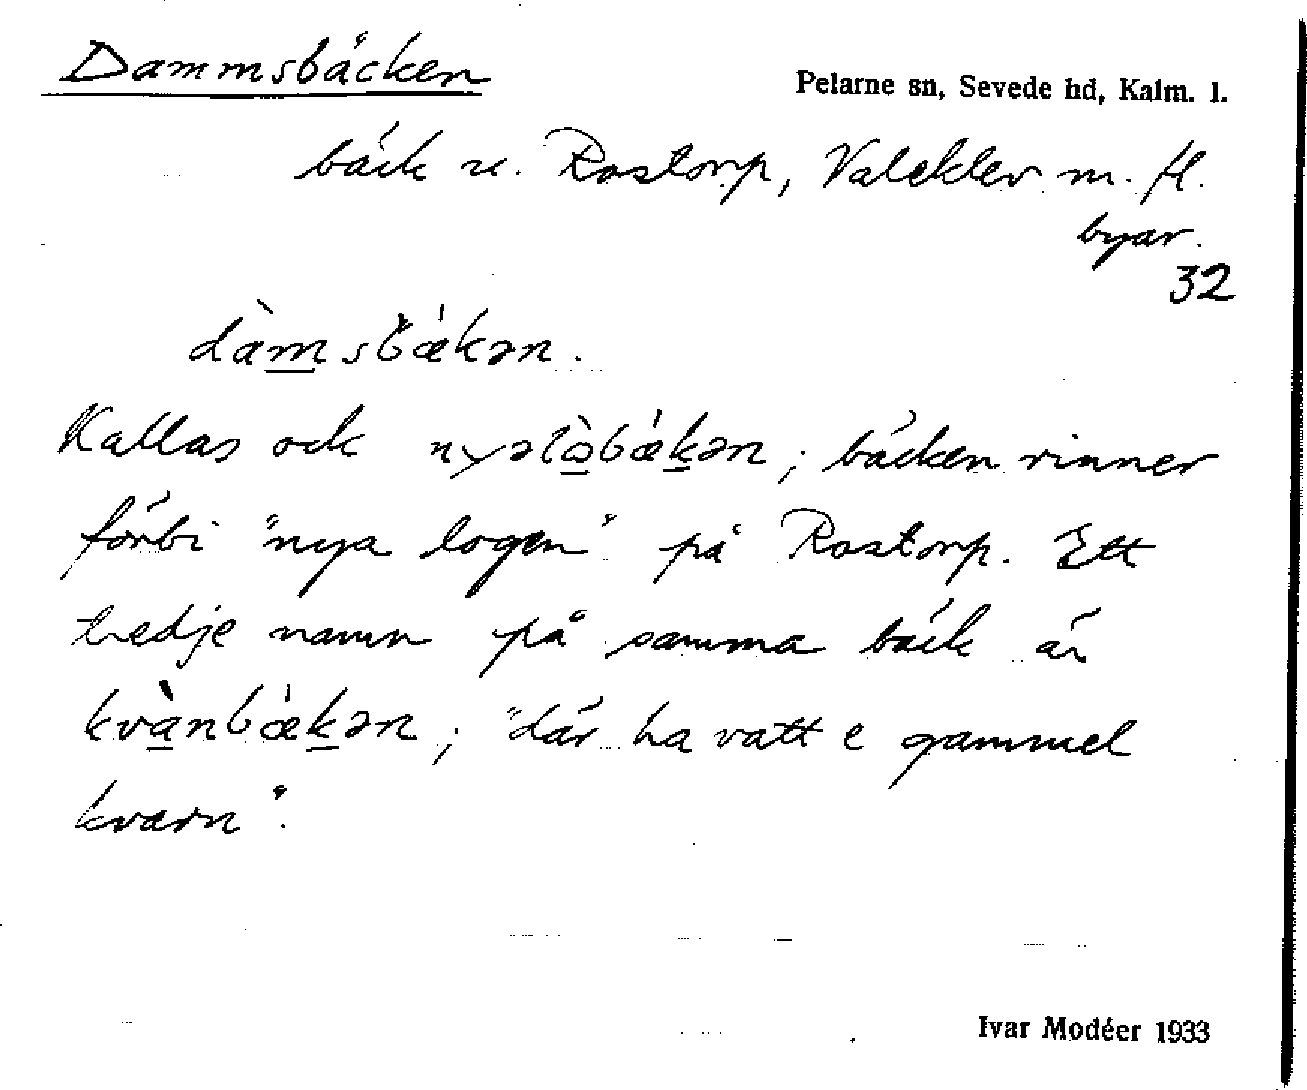 Dammsbäcken
Pelarne sn, Sevede hd, Kalm. l.
bäck u. Rostorp, Valeklev m. fl.
byar.
32
dàmsbǽkən.
Kallas ock nyəlòbǽkən; bäcken rinner
förbi "nya logen" på Rostorp. Ett
tredje namn på samma bäck är
kvànbǽkən; "där ha vatt e gammel
kvarn".
Ivar Modéer 1933